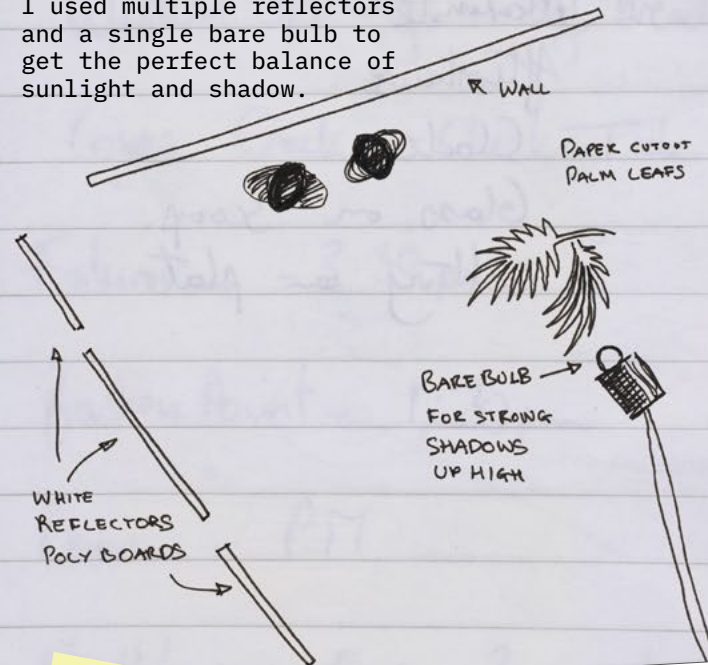 I used multiple reflectors
and a single bare bulb to
get the perfect balance of
sunlight and shadow.
WALL
PAPER CUTOUT
PALM LEAFS
BARE BULB
FOR STRONG
SHADOWS
UP HIGH
WHITE
REFLECTORS
POLY BOARDS